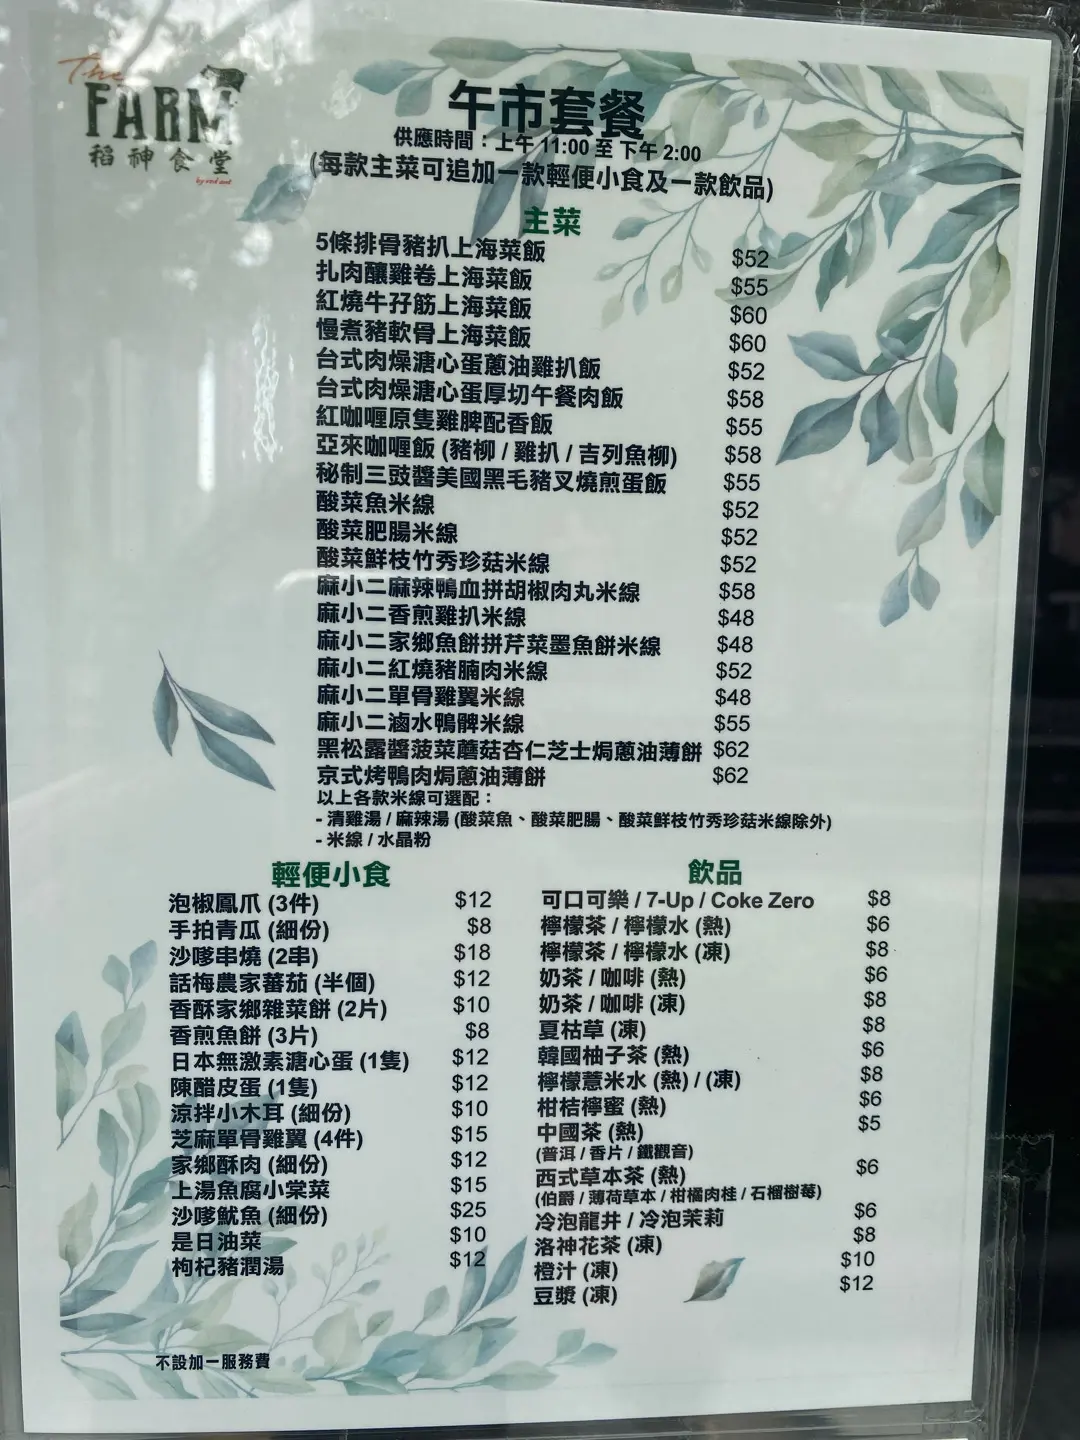 The
FARM
稻神食堂
by red ant
午市套餐
供應時間：上午 11:00 至 下午 2:00
(每款主菜可追加一款輕便小食及一款飲品)
主菜
5條排骨豬扒上海菜飯 $52
扎肉釀雞卷上海菜飯 $55
紅燒牛孖筋上海菜飯 $60
慢煮豬軟骨上海菜飯 $60
台式肉燥溏心蛋蔥油雞扒飯 $52
台式肉燥溏心蛋厚切午餐肉飯 $58
紅咖喱原隻雞脾配香飯 $55
亞來咖喱飯 (豬柳 / 雞扒 / 吉列魚柳) $58
秘制三豉醬美國黑毛豬叉燒煎蛋飯 $55
酸菜魚米線 $52
酸菜肥腸米線 $52
酸菜鮮枝竹秀珍菇米線 $52
麻小二麻辣鴨血拼胡椒肉丸米線 $58
麻小二香煎雞扒米線 $48
麻小二家鄉魚餅拼芹菜墨魚餅米線 $48
麻小二紅燒豬腩肉米線 $52
麻小二單骨雞翼米線 $48
麻小二滷水鴨髀米線 $55
黑松露醬菠菜蘑菇杏仁芝士焗蔥油薄餅 $62
京式烤鴨肉焗蔥油薄餅 $62
以上各款米線可選配：
- 清雞湯 / 麻辣湯 (酸菜魚、酸菜肥腸、酸菜鮮枝竹秀珍菇米線除外)
- 米線 / 水晶粉
輕便小食
泡椒鳳爪 (3件) $12
手拍青瓜 (細份) $8
沙嗲串燒 (2串) $18
話梅農家蕃茄 (半個) $12
香酥家鄉雜菜餅 (2片) $10
香煎魚餅 (3片) $8
日本無激素溏心蛋 (1隻) $12
陳醋皮蛋 (1隻) $12
涼拌小木耳 (細份) $10
芝麻單骨雞翼 (4件) $15
家鄉酥肉 (細份) $12
上湯魚腐小棠菜 $15
沙嗲魷魚 (細份) $25
是日油菜 $10
枸杞豬潤湯 $12
飲品
可口可樂 / 7-Up / Coke Zero $8
檸檬茶 / 檸檬水 (熱) $6
檸檬茶 / 檸檬水 (凍) $8
奶茶 / 咖啡 (熱) $6
奶茶 / 咖啡 (凍) $8
夏枯草 (凍) $8
韓國柚子茶 (熱) $6
檸檬薏米水 (熱) / (凍) $8
柑桔檸蜜 (熱) $6
中國茶 (熱) $5
(普洱 / 香片 / 鐵觀音)
西式草本茶 (熱) $6
(伯爵 / 薄荷草本 / 柑橘肉桂 / 石榴樹莓)
冷泡龍井 / 冷泡茉莉 $6
洛神花茶 (凍) $8
橙汁 (凍) $10
豆漿 (凍) $12
不設加一服務費